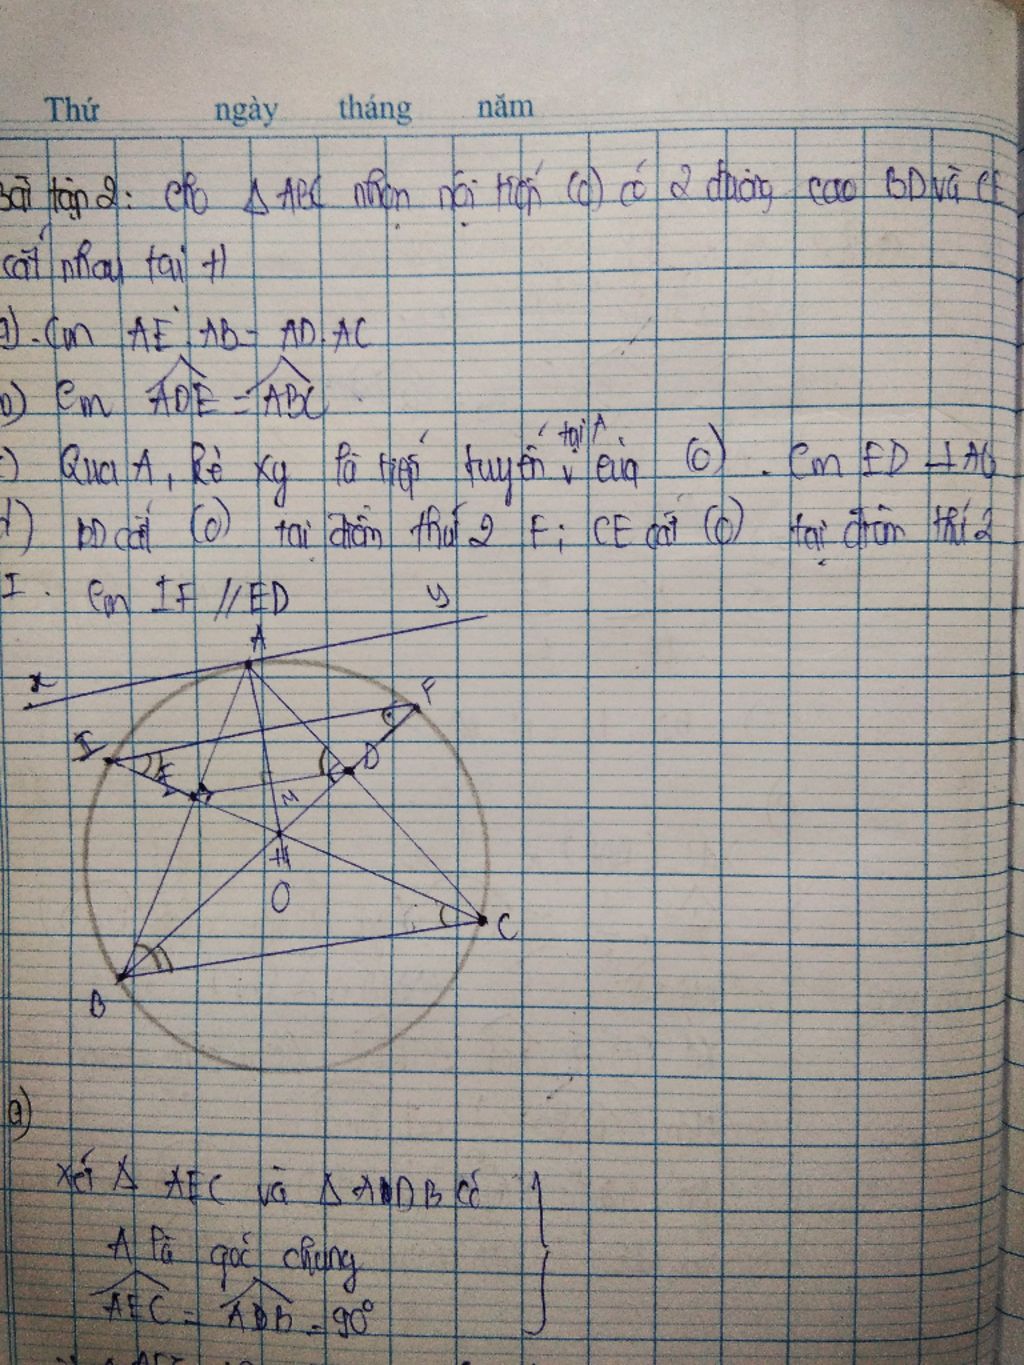 Thứ ngày tháng năm
Bài tập 2: Cho Δ ABC nhọn nội tiếp (O) có 2 đường cao BD và CE
cắt nhau tại H
a). Cm AE.AB = AD.AC
b) Cm ADE = ABC
c) Qua A, kẻ xy là tiếp tuyến tại A của (O). Cm ED ⊥ AO
d) BD cắt (O) tại điểm thứ 2 F; CE cắt (O) tại điểm thứ 2
I. Cm IF // ED
y
A
x
F
I
D
E
M
H
O
C
B
a)
Xét Δ AEC và Δ ADB có
A là góc chung
AEC = ADB = 90°